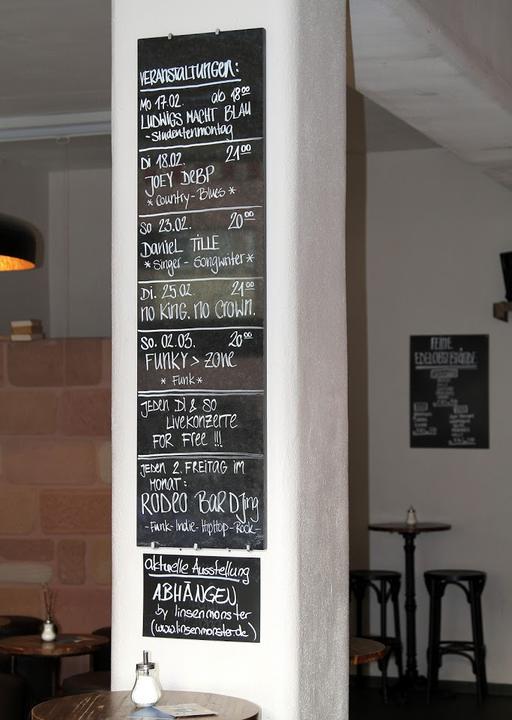 VERANSTALTUNGEN:
MO 17.02. ab 18⁰⁰
LUDWIGS MACHT BLAU
-Studentenmontag
Di 18.02. 21⁰⁰
JOEY DeBP
* Country-Blues *
SO 23.02. 20⁰⁰
DanieL TiLLE
* Singer - Songwriter *
Di. 25.02 21⁰⁰
no King. no Crown.
SO. 02.03. 20⁰⁰
FUNKY > ZONE
* Funk *
JEDEN DI & SO
Livekonzerte
FOR Free !!!
JEDEN 2. FREITAG im
MONAT:
RODEO BAR DJng
-Funk-Indie-HipHop-Rock-
aktuelle Ausstellung
ABHÄNGEN
by linsenmonster
(www.linsenmonster.de)
FEINE
EDELOBSTBRÄNDE